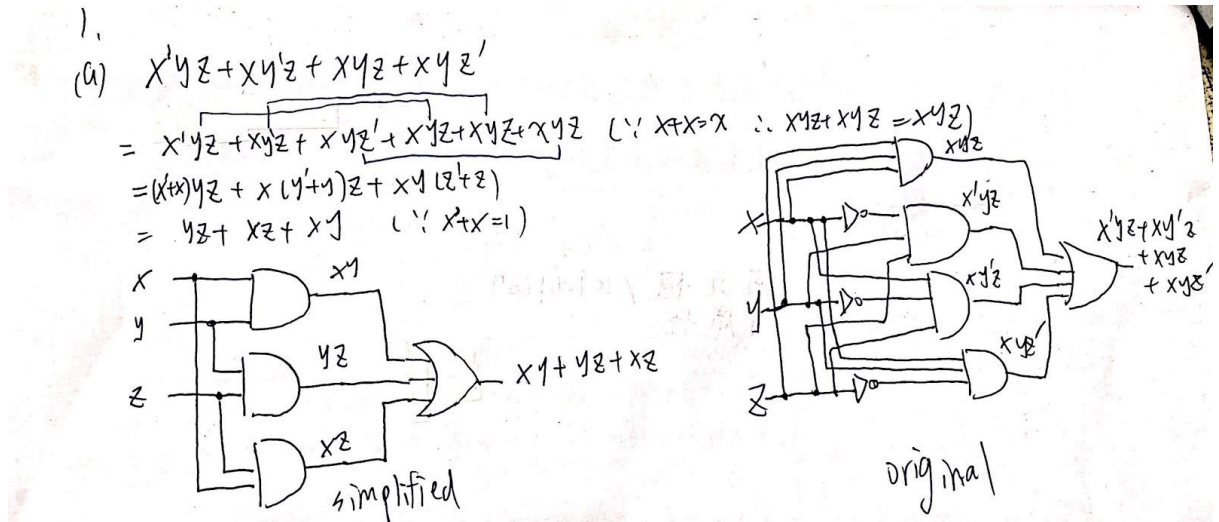 1.
(a) x'yz + xy'z + xyz + xyz'
= x'yz + xy'z + xyz' + xyz + xyz + xyz (∵ x+x=x ∴ xyz+xyz=xyz)
= (x'+x)yz + x(y'+y)z + xy(z'+z)
= yz + xz + xy (∵ x'+x=1)
x
y
z
xy
yz
xz
xy + yz + xz
simplified
x
y
z
xyz
x'yz
xy'z
xyz'
x'yz + xy'z
+ xyz
+ xyz'
original